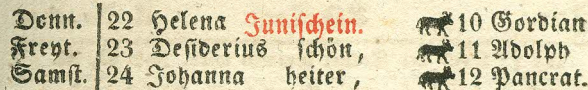 Donn. 22 Helena Junischein. 10 Gordian
Freyt. 23 Desiderius schön, 11 Adolph
Samst. 24 Johanna heiter, 12 Pancrat.